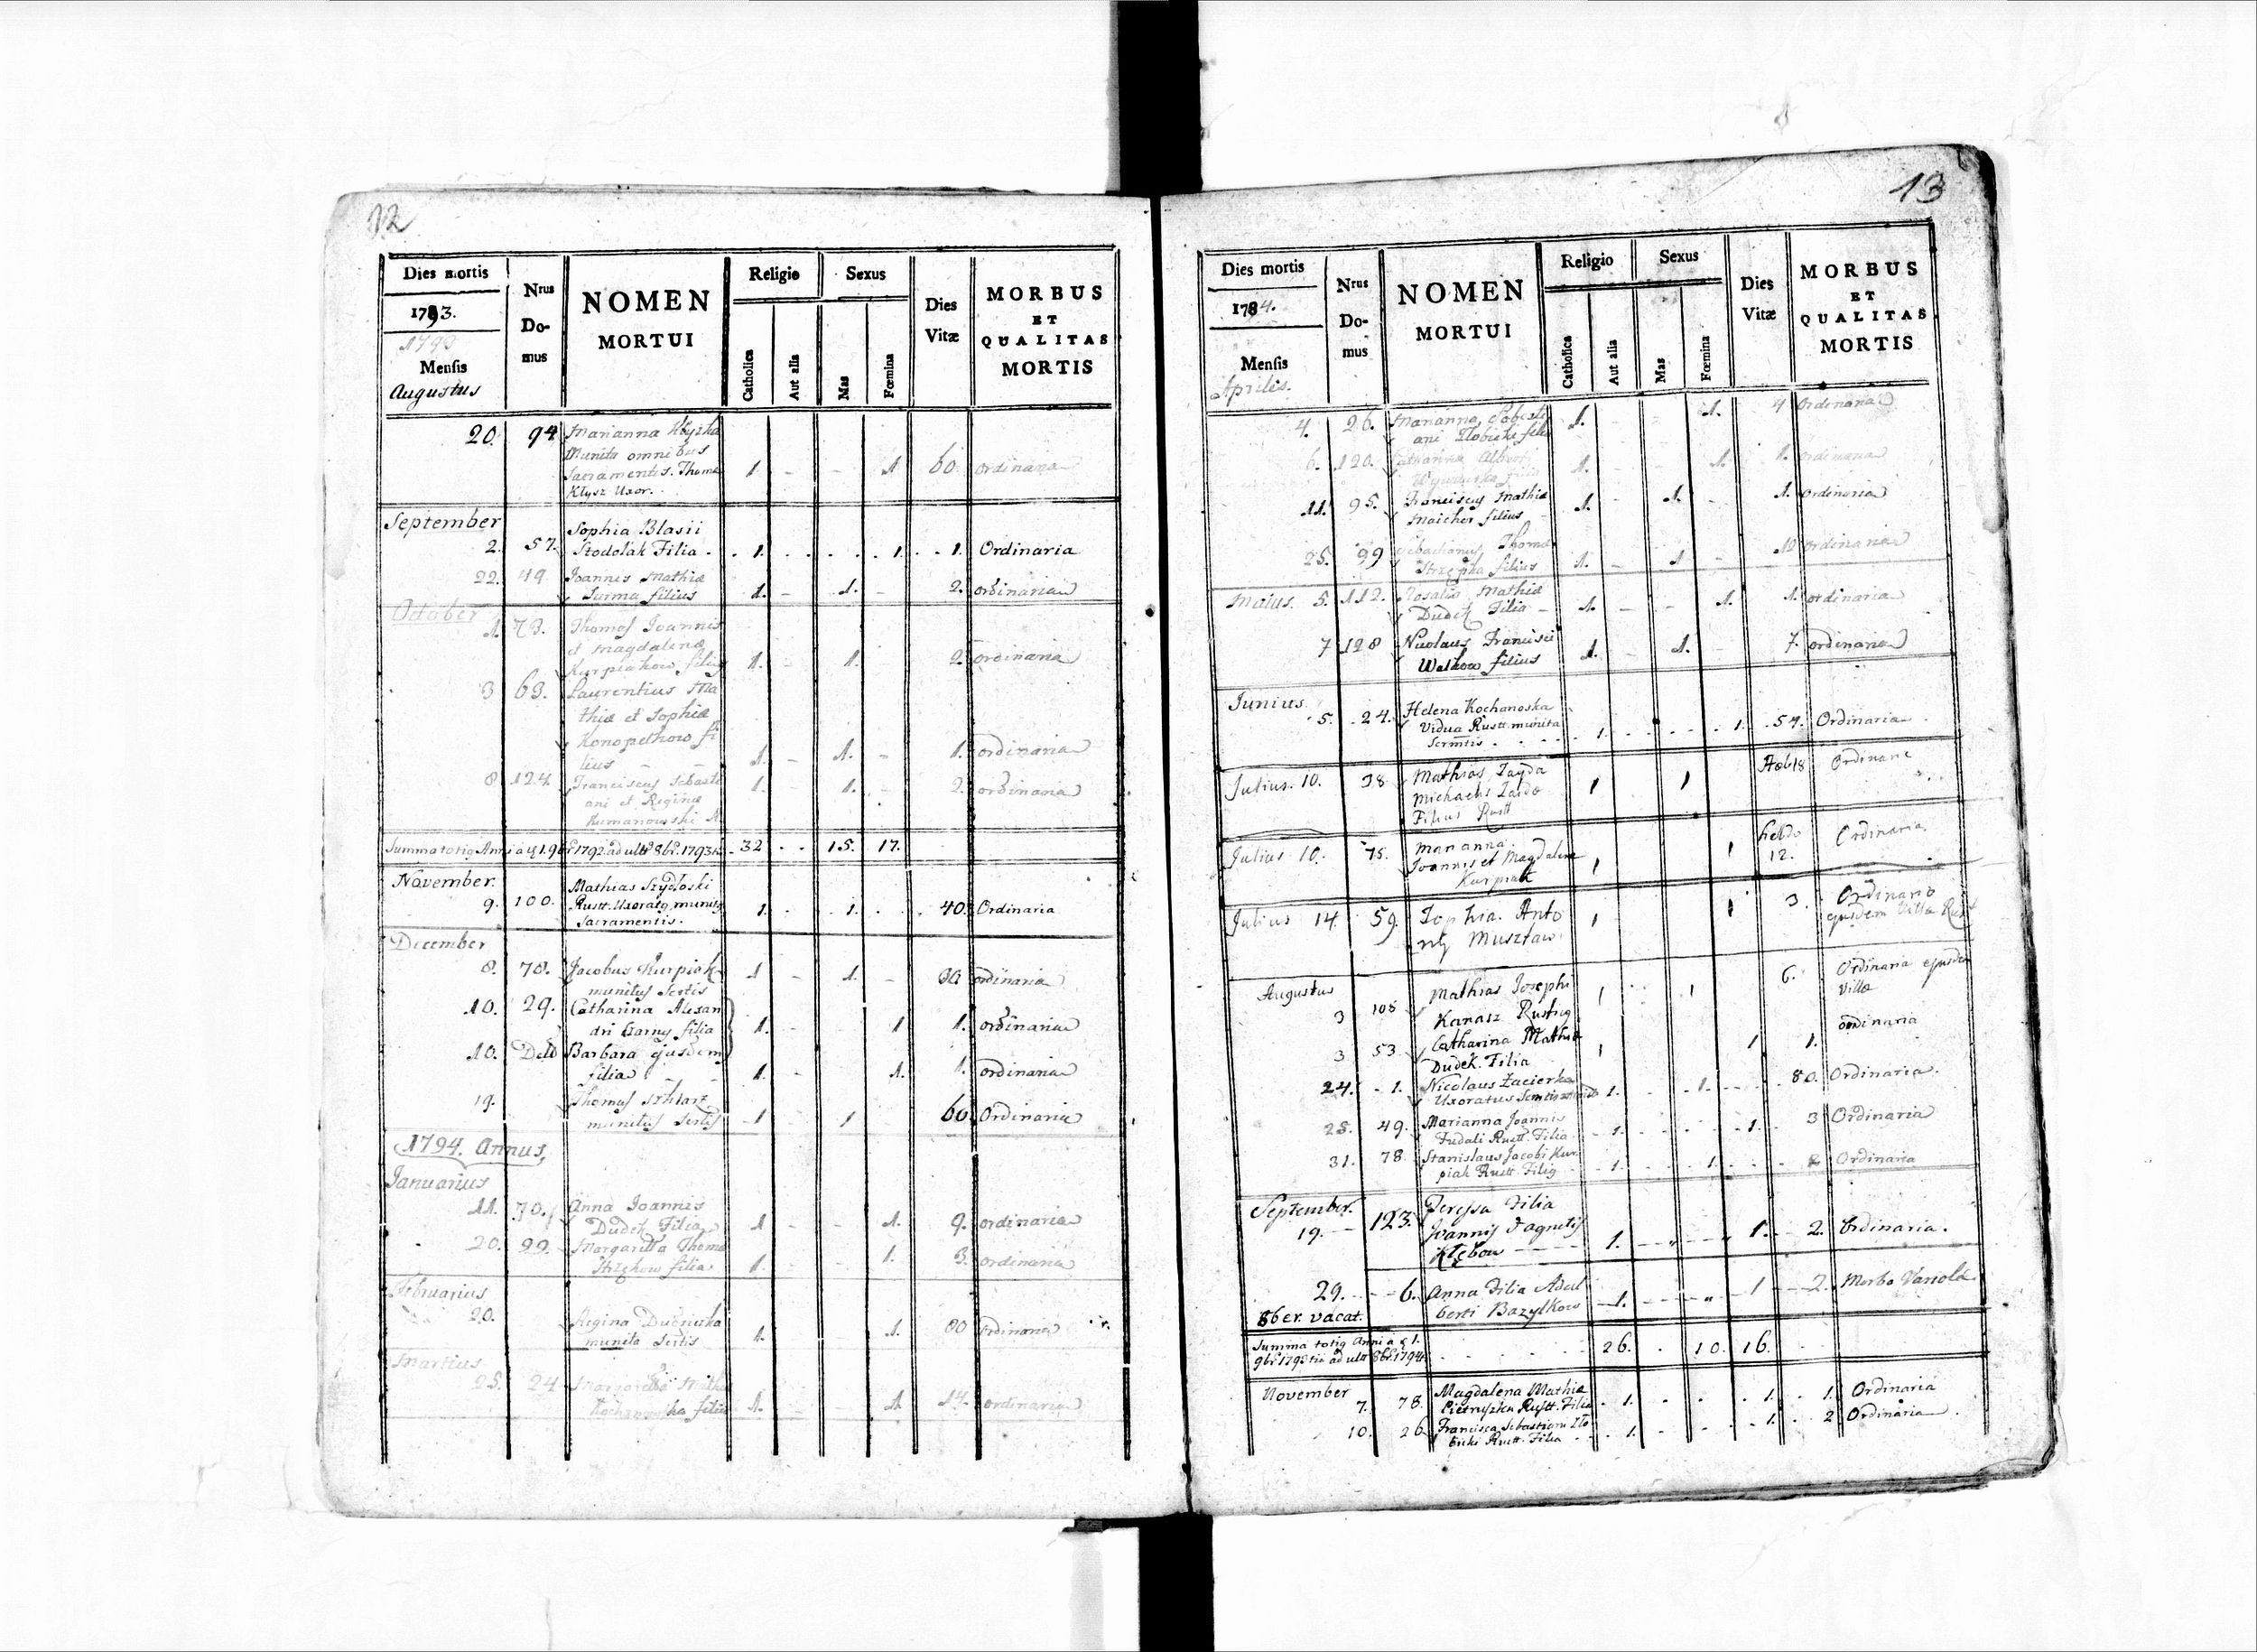 12
Dies mortis
1793.
1793
Mensis
Augustus
Nrus
Do-
mus
NOMEN
MORTUI
Religio
Catholica
Aut alia
Sexus
Mas
Fœmina
Dies
Vitæ
MORBUS
ET
QUALITAS
MORTIS
20. 94 Marianna
Munita omnibus
Sacramentis. Thoma 1. - - 1 60 ordinaria
Kłysz Uxor.
September Sophia Blasii
2. 57. Stodolak Filia . . 1. . . . . 1. . . 1. Ordinaria
22. 49. Joannis Mathiæ
Surma filius 1. - 1. - 2. ordinaria
October
1. 73. Thomas Joannis
et Magdalenæ
Kurpiakow filius 1. - 1. 2. ordinaria
3 63. Laurentius Ma
thiæ et Sophiæ
Konopelkow fi
lius - - 1. - 1. - 1. ordinaria
8 124. Franciscus Sebasti 1. - 1. - 2. ordinaria
ani et Reginæ
Kumanowski
Summa totig Anni a 1. 9br 1792 ad ult 8br. 1793 . 32 . . 15. 17.
November. Mathias Szydłoski
9. 100. Rustt. Uxoratg. munitg 1. . 1. . . 40. Ordinaria
Sacramentis.
December
8. 78. Jacobus Kurpiak 1 - 1. - ordinaria
munitus Scrtis
10. 29. Catharina Alexan
dri Czarny filia 1. - 1 1. ordinaria
10. Barbara ejusdem
filia - - 1. 1. 1. ordinaria
19. Thomas
munitus Scrtis 1 1 60 Ordinaria
1794. Annus,
Januarius
11. 70. Anna Joannis
Dudek Filia 1 - - 1. 9. ordinaria
20. 99. Margaretta Thoma
filia 1. - 1. 3. ordinaria
Februarius
20. Regina
munita Scrtis 1. 1. 80 ordinaria
Martius
25. 24 Margaretta Mathi
filia 1. 1 14. ordinaria
13
Dies mortis
1784.
Mensis
Aprilis.
Nrus
Do-
mus
NOMEN
MORTUI
Religio
Catholica
Aut alia
Sexus
Mas
Fœmina
Dies
Vitæ
MORBUS
ET
QUALITAS
MORTIS
4. 26. Marianna Sebasti 1. - - 1. 4 Ordinaria
ani filia
6. 120. Catharina Alberti 1. 1. 1. ordinaria
filia
11. 95. Franciscus Mathiæ 1. - 1. - 1. ordinaria
Maicher filius
25. 99 Sebastianus Thomæ
Strzepka filius 1. - 1 - 10 ordinaria
Maius. 5. 112. Rosalia Mathiæ
Dudek Filia - 1. - - 1. 1. ordinaria
7 128 Nicolaus Francisci
Walkow filius 1. - 1. - 7. ordinaria
Junius. Helena Kochanoska
5. . 24. Vidua Rustt. munita
Scrmtis . . . 1. . . . . 1. . 54. Ordinaria
Julius. 10. 38 Mathias Zayda 1 1 18 Ordinari
Michaelis
Filius Rustt
Julius 10. 75. Marianna 1 hebdo Ordinaria
Joannis et Magdalena 1 12.
Kurpiak
Julius 14. 59. Sophia. Anto 1 1 3. Ordinario
nij Musztaw ejusdem Villæ Rust
Augustus Mathias Josephi 1 1 6. Ordinaria ejusdem
3 108 Kanasz Rustig Villæ
3 53 Catharina Mathiæ 1 1 1. ordinaria
Dudek. Filia
24. . 1. Nicolaus Zacierka 1. 1. 80. Ordinaria.
Uxoratus
25. 49. Marianna Joannis 1. 1. 3 Ordinaria
Fudali Rustt. Filia
31. 78. Stanislaus Jacobi Kur 1. 1. Ordinaria
piak Rustt. Filig
September. Teressa Filia
19. 123. Joannis Jagnetis
1. 1. 2. Ordinaria.
29. 6. Anna Filia Adal 1. 1 2. Morbo Variola
8ber. vacat. berti Bazylkow
Summa totig Anni a 1.
9br 1793 tio ad ult 8br. 1794 . . . 26. . 10. 16.
November Magdalena Mathiæ
7. 78. Pietruszka Rustt. Filia . 1. . . . 1. . 1. Ordinaria
10. 26. Francisca Sebastiani
Rustt. Filia . . 1. . . . 1. . 2 Ordinaria